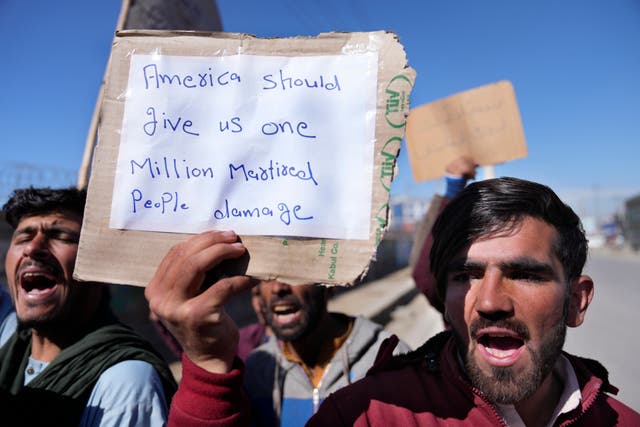 America should
give us one
Million Martired
People damage
Kabul